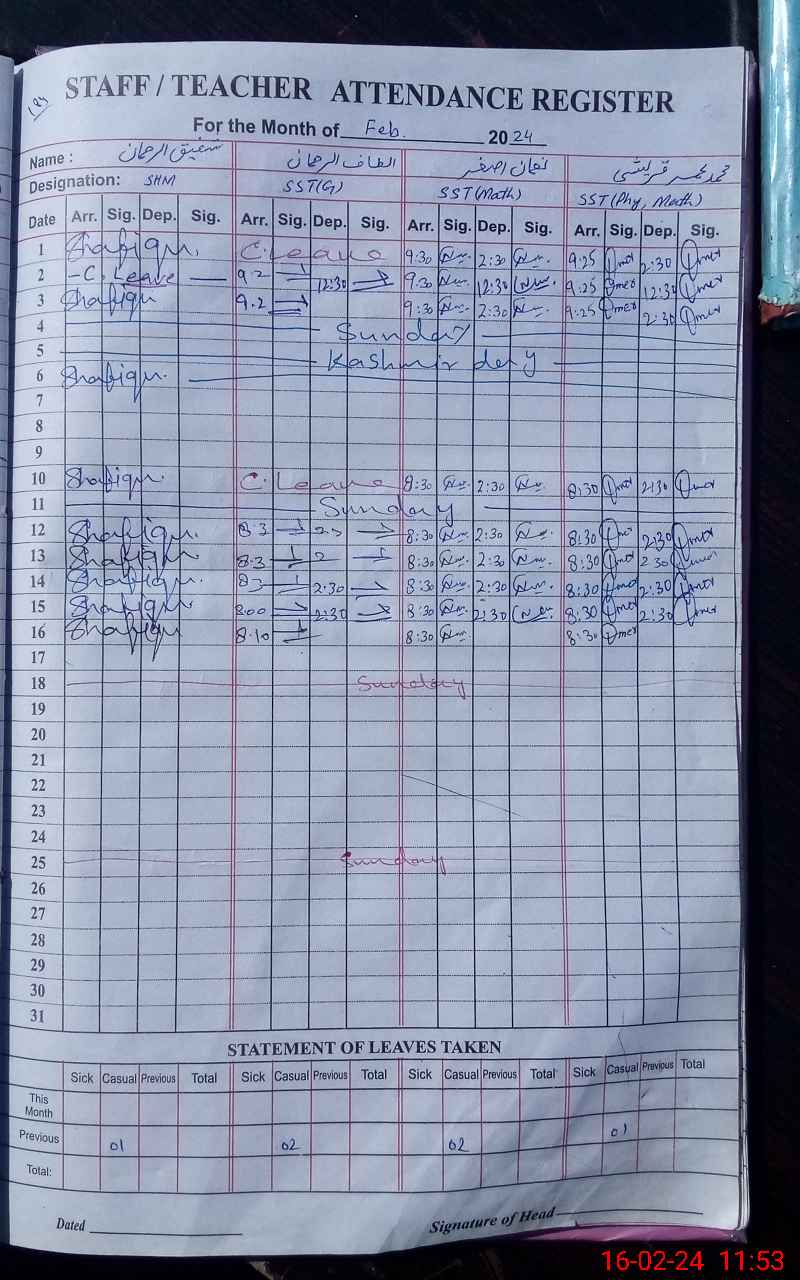 STAFF / TEACHER ATTENDANCE REGISTER
For the Month of Feb. 2024
Name : شفیق الرحمان الطاف الرحمان نعمان اصغر محمد عمر قریشی
Designation: SHM SST(G) SST(Math) SST(Phy, Math)
Date Arr. Sig. Dep. Sig. Arr. Sig. Dep. Sig. Arr. Sig. Dep. Sig. Arr. Sig. Dep. Sig.
1 Shafiqur. C. Leave 9:30 2:30 9:25 Omer 2:30 Omer
2 - C. Leave - 9.2 12:30 9:30 12:30 9:25 Omer 12:30 Omer
3 Shafiqur 9.2 9:30 2:30 9:25 Omer 2:30 Omer
4 Sunday
5 Kashmir day
6 Shafiqur.
7
8
9
10 Shafiqur. C. Leave 8:30 2:30 8:30 Omer 2:30 Omer
11 Sunday
12 Shafiqur. 8.3 8:30 2:30 8:30 Omer 2:30 Omer
13 Shafiqur. 8.3 2 8:30 2:30 8:30 Omer 2 30 Omer
14 Shafiqur. 83 2:30 8:30 2:30 8:30 Omer 2:30 Omer
15 Shafiqur 800 2:30 8:30 2:30 8:30 Omer 2:30 Omer
16 Shafiqur 8.10 8:30 8:30 Omer
17
18 Sunday
19
20
21
22
23
24
25 Sunday
26
27
28
29
30
31
STATEMENT OF LEAVES TAKEN
Sick Casual Previous Total Sick Casual Previous Total Sick Casual Previous Total Sick Casual Previous Total
This Month
Previous 01 02 02 01
Total:
Dated Signature of Head
16-02-24 11:53